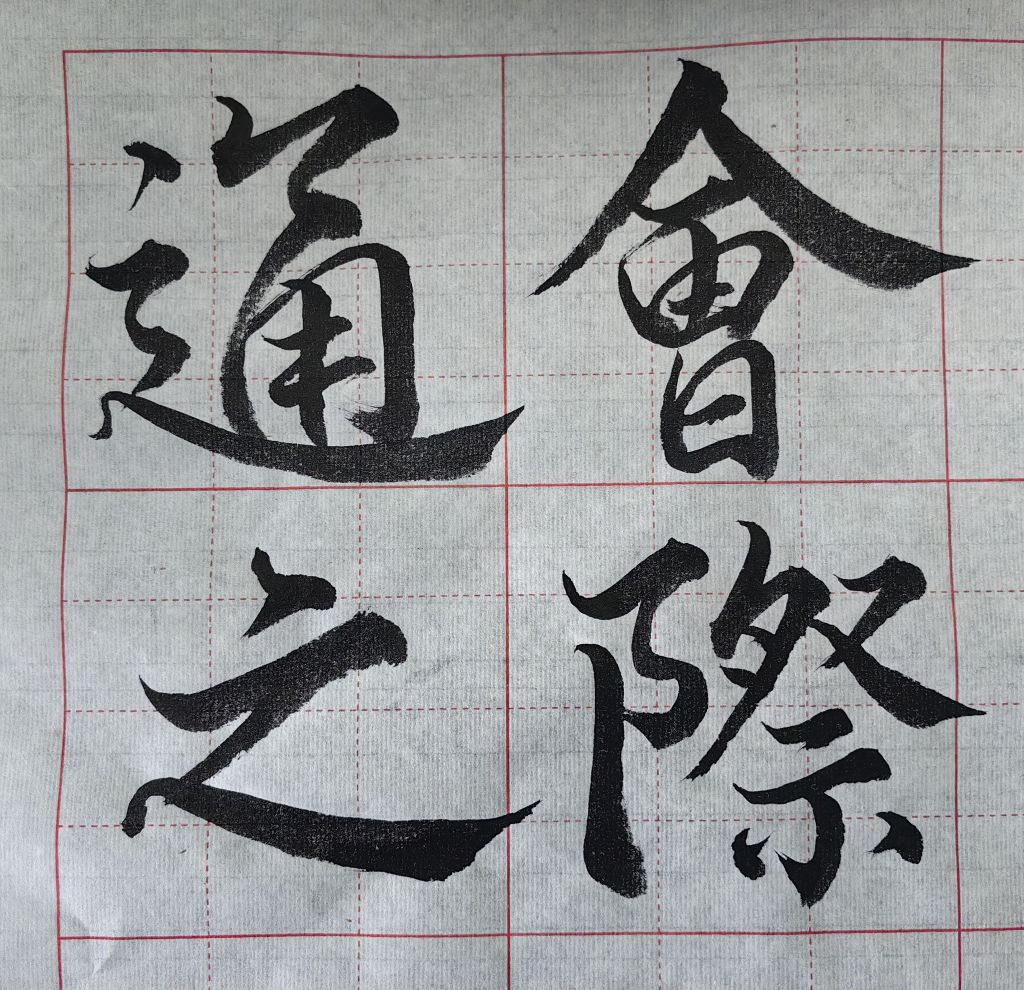 通會
之際